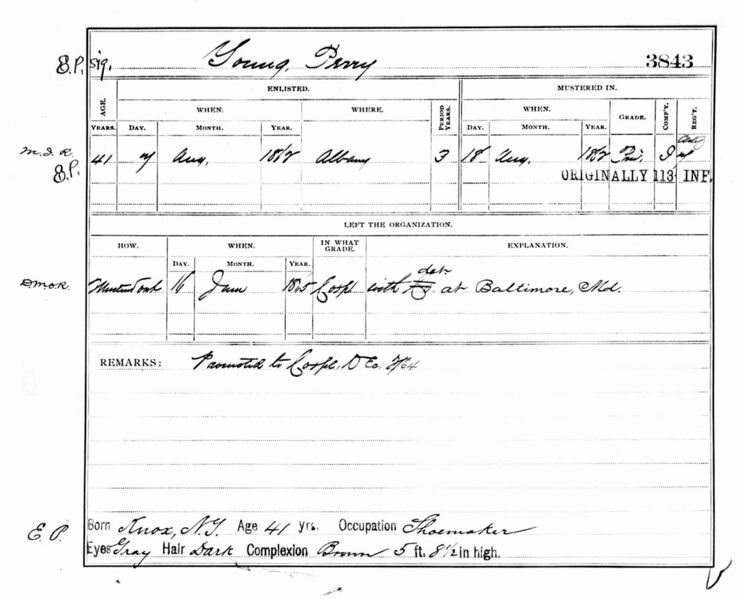 E.P. sig. Young, Perry 3843
AGE. ENLISTED. MUSTERED IN.
WHEN. WHERE. PERIOD YEARS. WHEN. GRADE. COMP'Y. REG'T.
YEARS. DAY. MONTH. YEAR. DAY. MONTH. YEAR.
M.I.R. 41 Aug. 1862 Albany 3 18 Aug. 1862
E.P. ORIGINALLY 113 INF.
LEFT THE ORGANIZATION.
HOW. WHEN. IN WHAT GRADE. EXPLANATION.
DAY. MONTH. YEAR.
DMOR. Mustered out 16 June 1865 Corpl with det at Baltimore, Md.
REMARKS: Promoted to Corpl.
E.P. Born Knox, N.Y. Age 41 yrs. Occupation Shoemaker
Eyes Gray Hair Dark Complexion Brown 5 ft. 8½ in high.